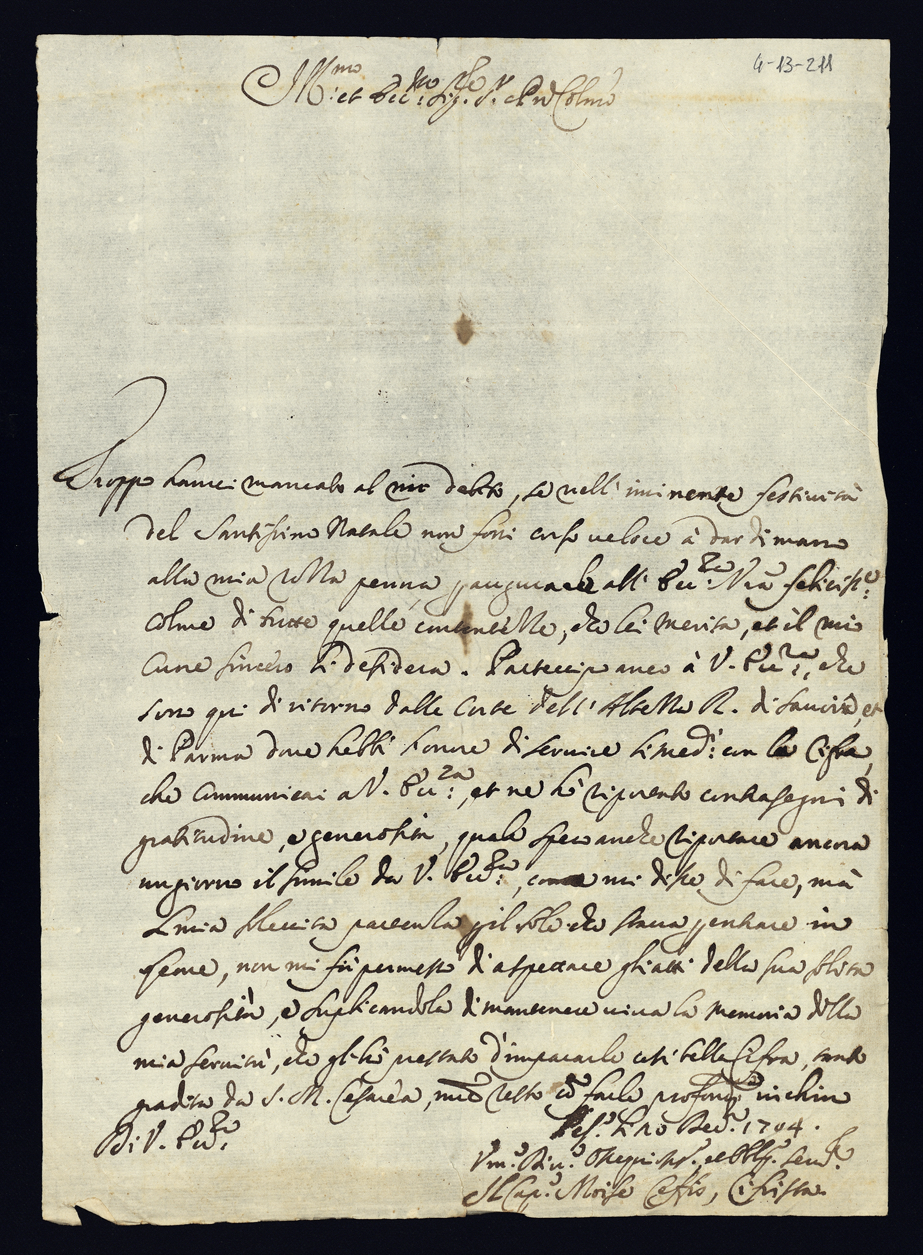 4-13-211
Ill:mo et Ecc:mo Sig:r S:r et Pñ Colmo
Troppo haurei mancato al mio debito, se nell' iminente festiuità
del Santissimo Natale non fossi corso ueloce à dar di mano
alla mia rozza penna p augurarle all' Ecc:za Vrã felicis:o
colme di tutte quelle contentezze, che lei merita, et il mio
Cuore sincero li desidera. Partecipo anco à V. Ecc:za, che
sono qui di ritorno dalle Corte dell' Altezza R. di Sauoia, et
di Parma doue hebbi honore di seruire li med:i con la Cifra,
che communicai a V. Ecc:za, et ne hò riportato contrasegni di
gratitudine, e generosità, quale spero anche riportare ancora
un giorno il simile da V. Ecc:za, come mi disse di fare, mà
la mia sollecita partenza p il nolo che staua p entrare in
seme, non mi fù permesso di aspettare gli atti della sua solita
generosità, e suplicandola di mantenere uiua la memoria della
mia seruitù, che gli hò prestato d'impararle così bella Cifra, tanto
gradita da S. M. Cesarea, mẽtre resto cõ farle profondi inchini
Di V. Ecc:za
li 20 Dec: 1704.
Vm:o Diu:o Osequis:o et Obblg:o Seru:e
Il Cap:o Moise Cafis, Cifrista